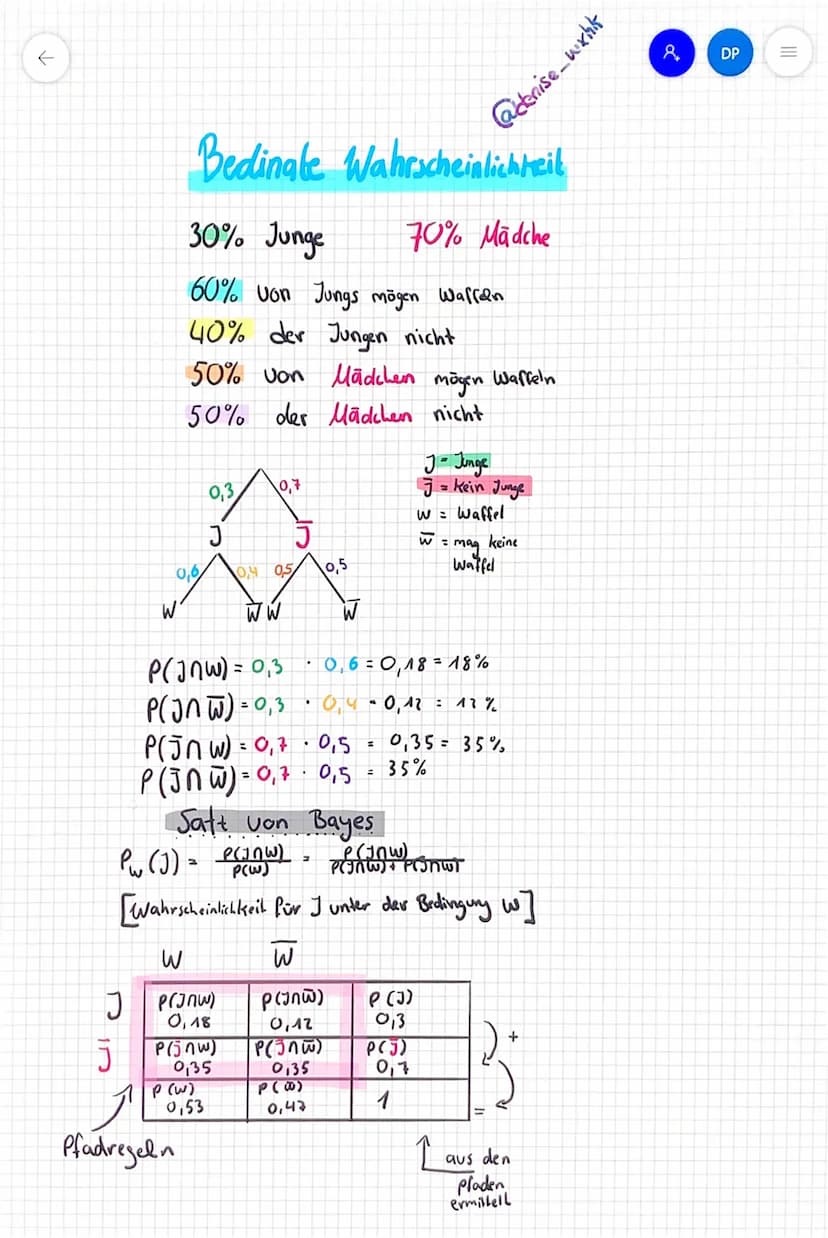 @denise_wxhk
DP
Bedingte Wahrscheinlichkeit
30% Junge 70% Mädche
60% von Jungs mögen Waffeln
40% der Jungen nicht
50% von Mädchen mögen Waffeln
50% der Mädchen nicht
J = Junge
J̅ = kein Junge
W = Waffel
W̅ = mag keine
Waffel
0,3 0,7
J J̅
0,6 0,4 0,5 0,5
W W̅ W W̅
P(J∩W) = 0,3 · 0,6 = 0,18 = 18%
P(J∩W̅) = 0,3 · 0,4 = 0,12 = 12%
P(J̅∩W) = 0,7 · 0,5 = 0,35 = 35%
P(J̅∩W̅) = 0,7 · 0,5 = 35%
Satz von Bayes
P_W(J) = P(J∩W)/P(W) = P(J∩W)/P(J∩W)+P(J̅∩W)
[Wahrscheinlichkeit für J unter der Bedingung W]
W W̅
J P(J∩W) P(J∩W̅) P(J)
0,18 0,12 0,3
J̅ P(J̅∩W) P(J̅∩W̅) P(J̅)
0,35 0,35 0,7
P(W) P(W̅) 1
0,53 0,47
+
=
Pfadregeln
aus den
Pfaden
ermittelt